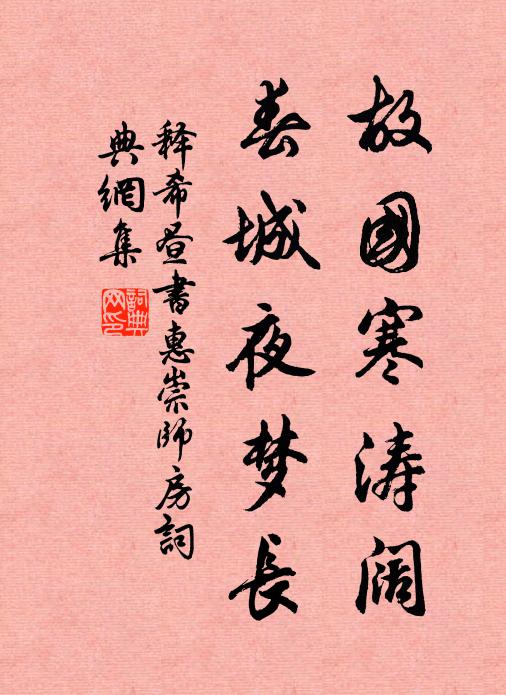 故國寒涛阔
春城夜梦長
释希昼書惠崇師房詞
典網集
詞典网印